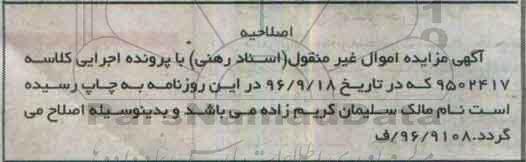 اصلاحیه
آگهی مزایده اموال غیر منقول(اسناد رهنی) با پرونده اجرایی کلاسه
۹۵۰۲۴۱۷ که در تاریخ ۹۶/۹/۱۸ در این روزنامه به چاپ رسیده
است نام مالک سلیمان کریم زاده می باشد و بدینوسیله اصلاح می
گردد.۹۶/۹۱۰۸/ف
ParsNamadData